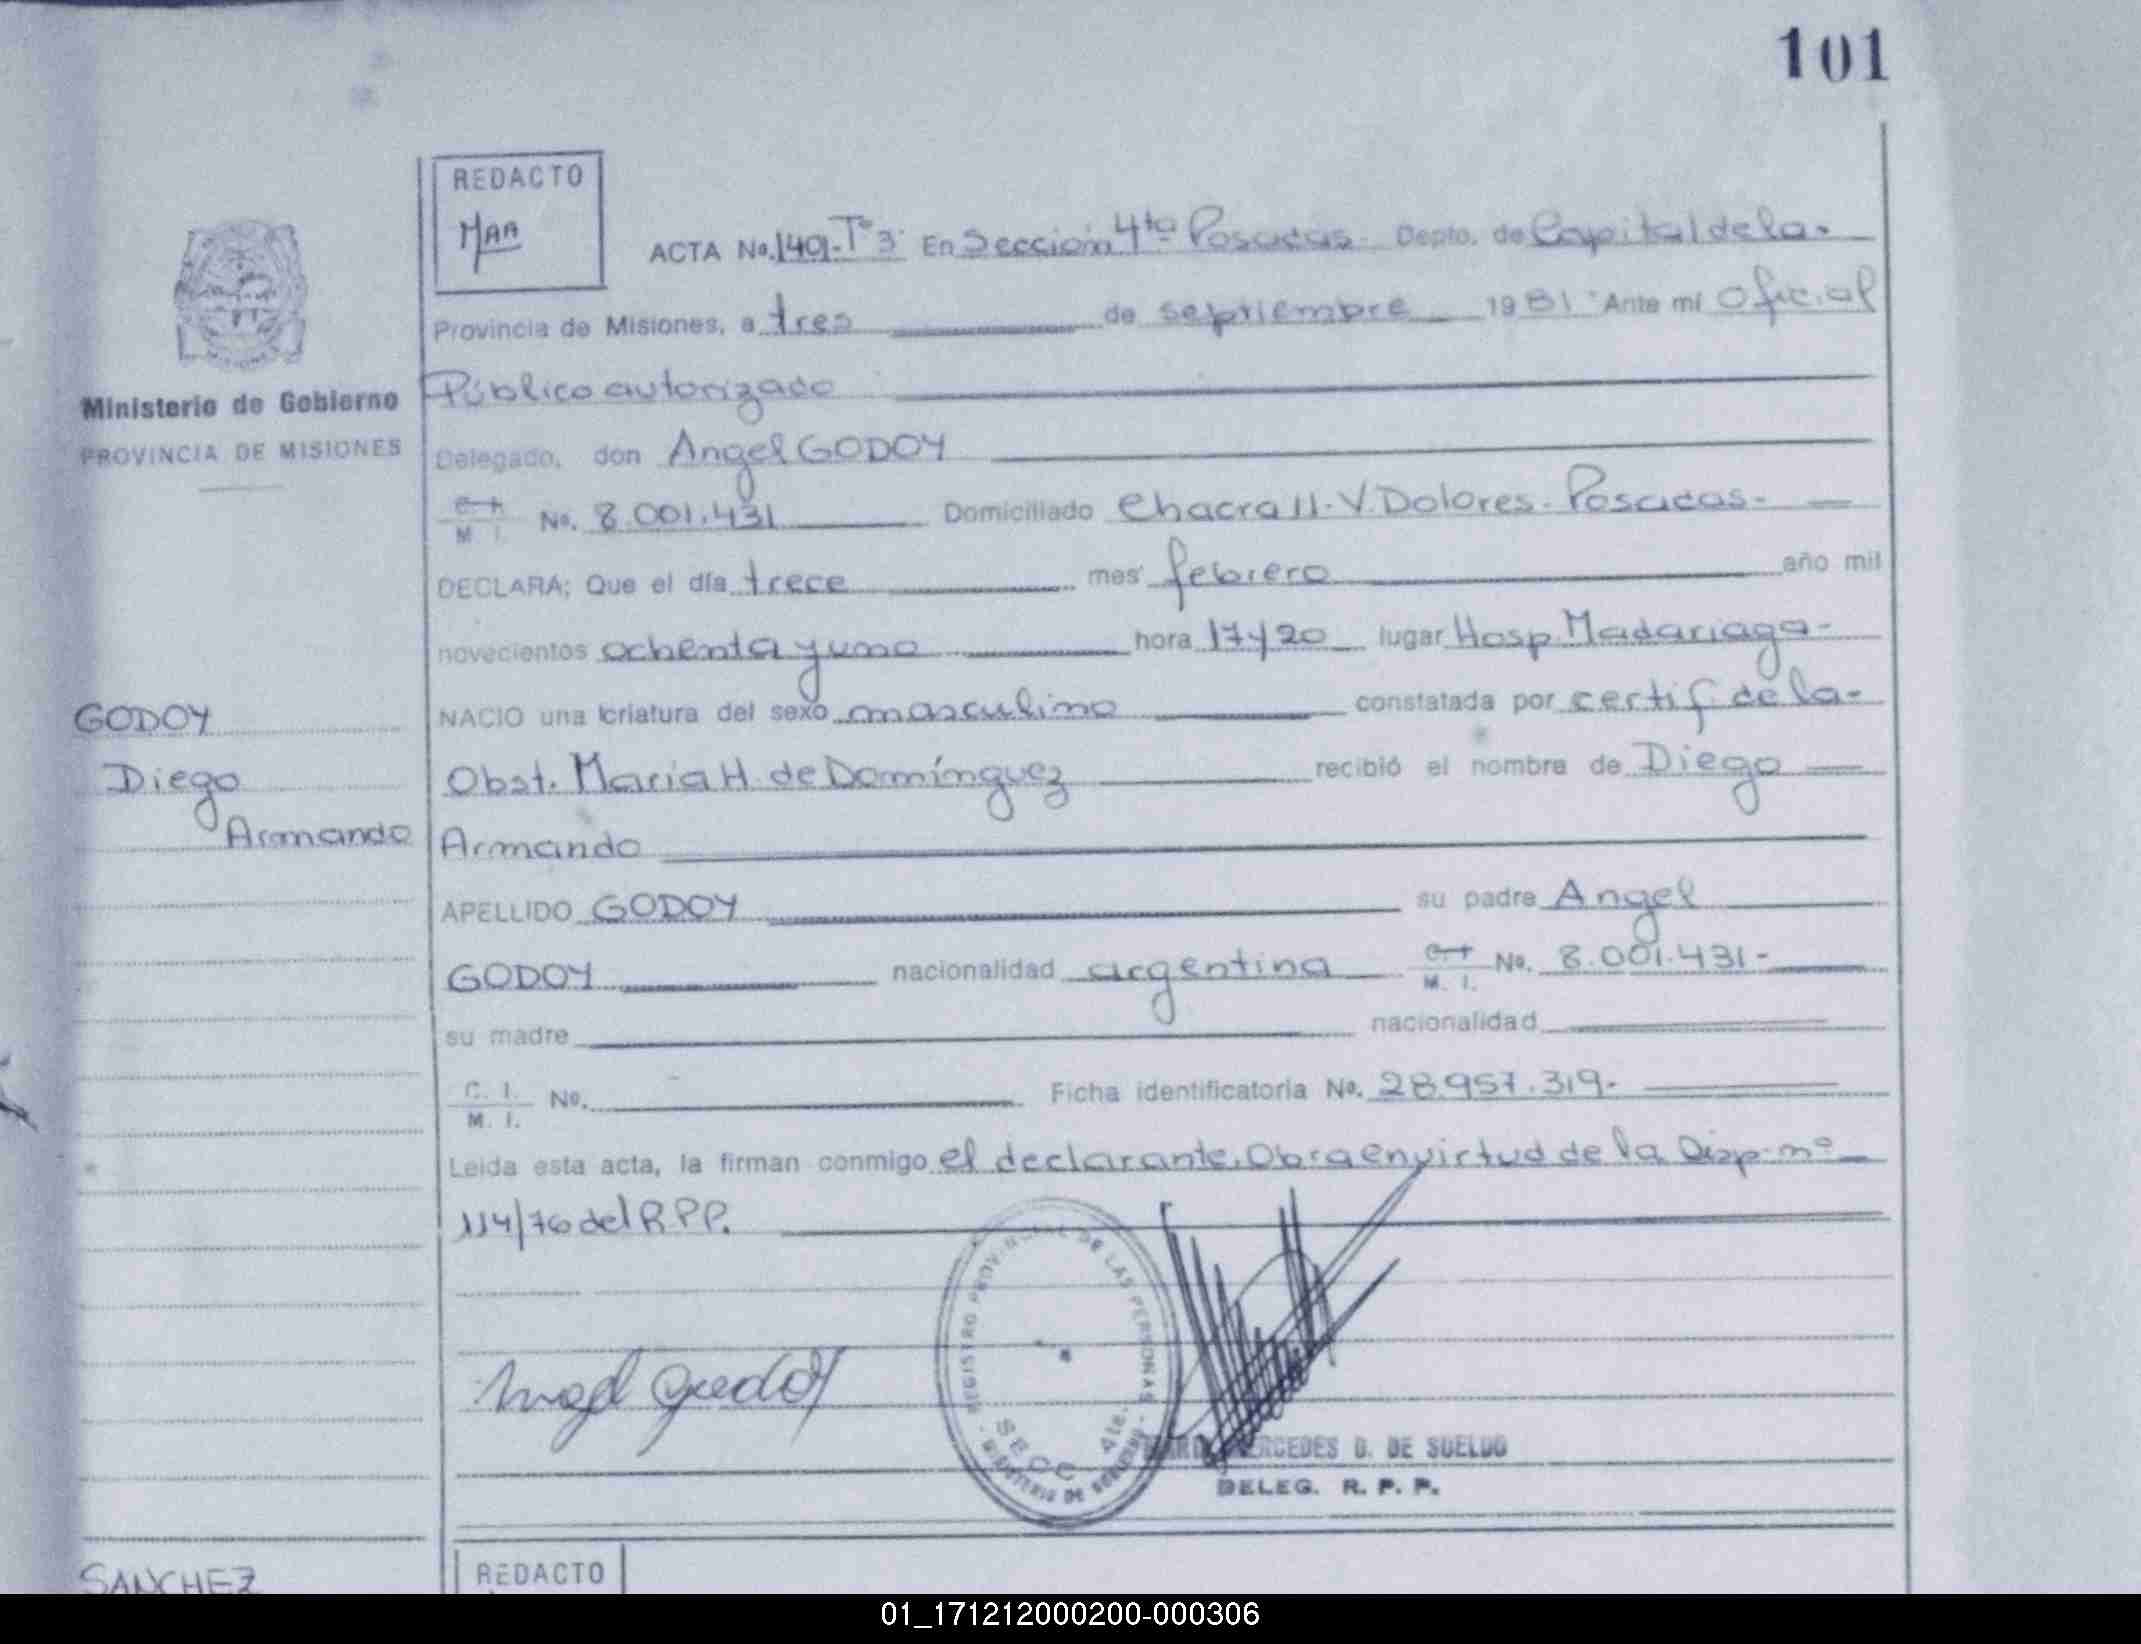 101
REDACTO
MAA
ACTA No. 1491-Tº3 En Sección 4ta Posadas- Depto. de Capital de la-
Provincia de Misiones, a tres de septiembre 1981 Ante mí Oficial
Público autorizado
Ministerio de Gobierno
PROVINCIA DE MISIONES
Delegado, don Angel GODOY
M I. No. 8.001.431 Domiciliado Chacra 11-V.Dolores-Posadas-
DECLARA; Que el día trece mes febrero año mil
novecientos ochenta y uno hora 17y20 lugar Hosp Madariaga-
GODOY
Diego
Armando
NACIO una criatura del sexo masculino constatada por certif de la-
Obst. Maria H. de Domínguez recibió el nombre de Diego
Armando
APELLIDO GODOY su padre Angel
GODOY nacionalidad argentina M. I. No. 8.001.431-
su madre nacionalidad
C. I. M. I. No. Ficha identificatoria No. 28.957.319-
Leida esta acta, la firman conmigo el declarante. Obra en virtud de la Disp-nº
114/76 del R.P.P.
Angel Godoy
REGISTRO PROVINCIAL DE LAS PERSONAS
SECC 4ta.
MINISTERIO DE GOBIERNO
MERCEDES B. DE SUELDO
DELEG. R. P. P.
SANCHEZ
REDACTO
01_171212000200-000306